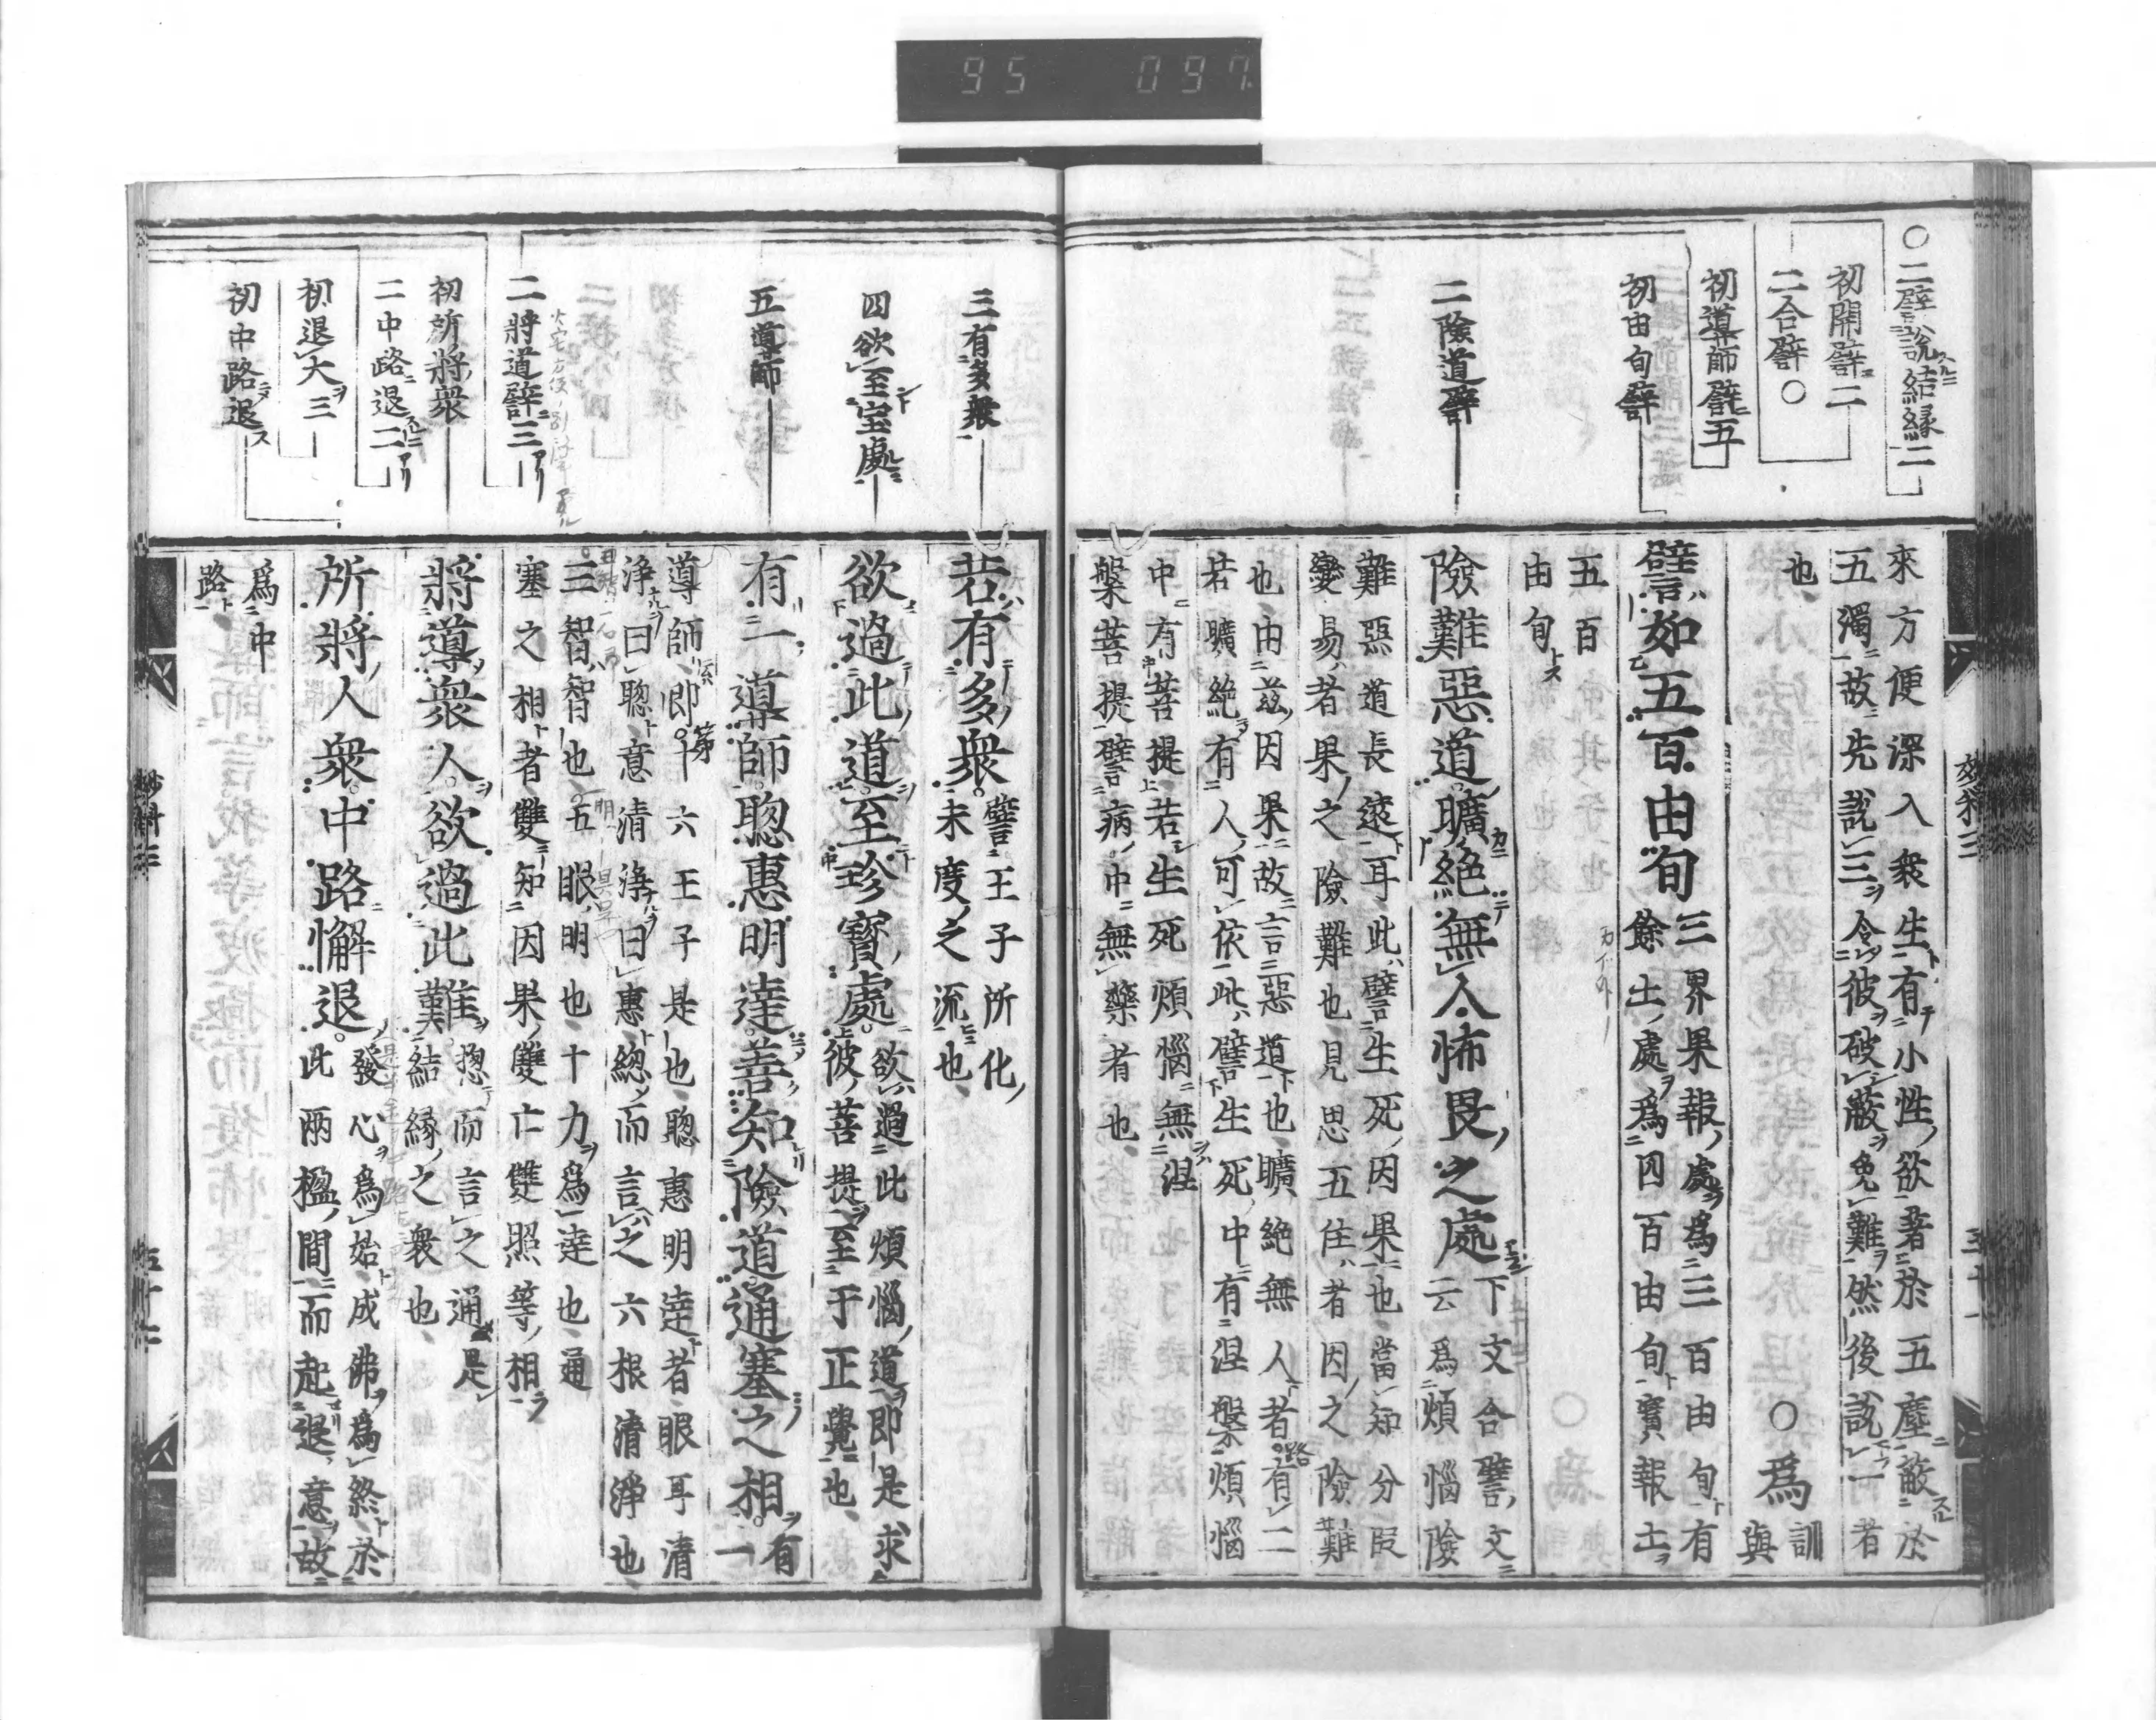 95 097
○二譬說結縁二
初開譬二
二合譬○
初導師譬五
初由旬譬
二險道譬
來方便深入衆生有小性欲著於五塵蔽於
五濁故先說三令彼破蔽免難然後說一者
也
○爲
訓
與
譬如五百由旬
三界果報處爲三百由旬有
餘土處爲四百由旬實報土
五百
由旬
險難惡道曠絶無人怖畏之處
下文合譬文
云爲煩惱險
難惡道長遠耳此譬生死因果也當知分段
變易者果之險難也見思五住者因之險難
也由茲因果故言惡道也曠絶無人者有二
若曠絶有人可依此譬生死中有涅槃煩惱
中有菩提若生死煩惱無涅
槃菩提譬病中無藥者也
妙科三
五十一
三有多衆
四欲至宝處
五導師
二將導譬三
初所將衆
二中路退二
初退大三
初中路退
若有多衆
譬王子所化
未度之流也
欲過此道至珍寶處
欲過此煩惱道即是求
彼菩提至于正覺也
有一導師聰惠明達善知險道通塞之相
有
一
導師即第十六王子是也聰惠明達者眼耳清
淨曰聰意清淨曰惠總而言之六根清淨也
三智智也五眼明也十力爲達也通
塞之相者雙知因果雙亡雙照等相
將導衆人欲過此難
惣而言之通是
結縁之衆也
所將人衆中路懈退
發心爲始成佛爲終於
此兩楹間而起退意故
爲中
路
妙科三
五十二